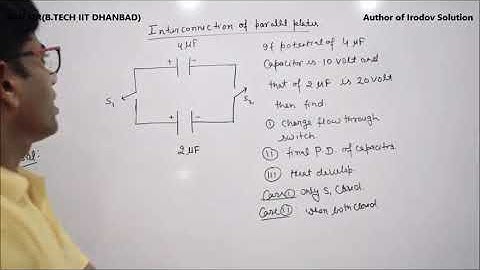 (B.TECH IIT DHANBAD)
Author of Irodov Solution
Interconnection of parallel plates
4 µF
+ -
S₁
S₂
+ -
2 µF
If potential of 4 µF
Capacitor is 10 volt and
that of 2 µF is 20 volt
then find
(I) Charge flow through
switch.
(II) final P.D. of capacitor
(III) Heat develop
Case (I) only S, Closed.
Case (II) when both closed